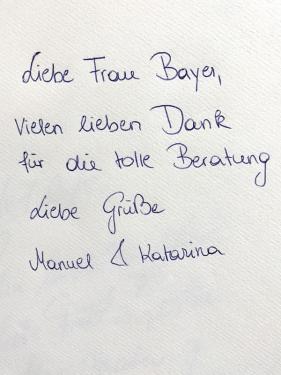 Liebe Frau Bayer,
Vielen lieben Dank
für die tolle Beratung
Liebe Grüße
Manuel & Katarina